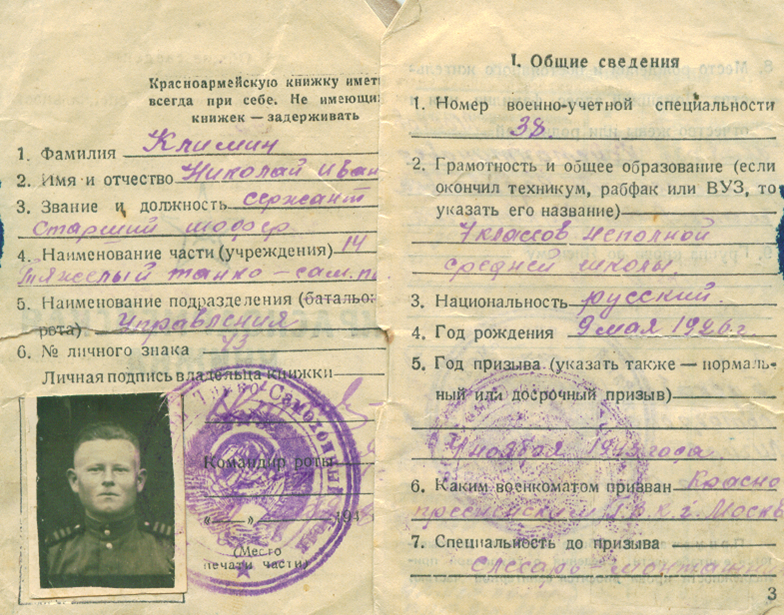 Красноармейскую книжку иметь
всегда при себе. Не имеющих
книжек — задерживать
1. Фамилия Климин
2. Имя и отчество Николай Иван
3. Звание и должность сержант
Старший шофер
4. Наименование части (учреждения) 14
Тяжелый танко-сам. п
5. Наименование подразделения (батальон
рота) Управления
6. № личного знака 43
Личная подпись владельца книжки
Танко-Самоходный
Командир роты
„ “ 194
(Место
печати части)
I. Общие сведения
1. Номер военно-учетной специальности
38.
2. Грамотность и общее образование (если
окончил техникум, рабфак или ВУЗ, то
указать его название)
7 классов неполной
средней школы.
3. Национальность русский.
4. Год рождения 9 мая 1926 г.
5. Год призыва (указать также — нормаль-
ный или досрочный призыв)
ноября 1943 года
6. Каким военкоматом призван Красно
пресненским Р.В.К. г. Москв
7. Специальность до призыва
слесарь-монтажн
3